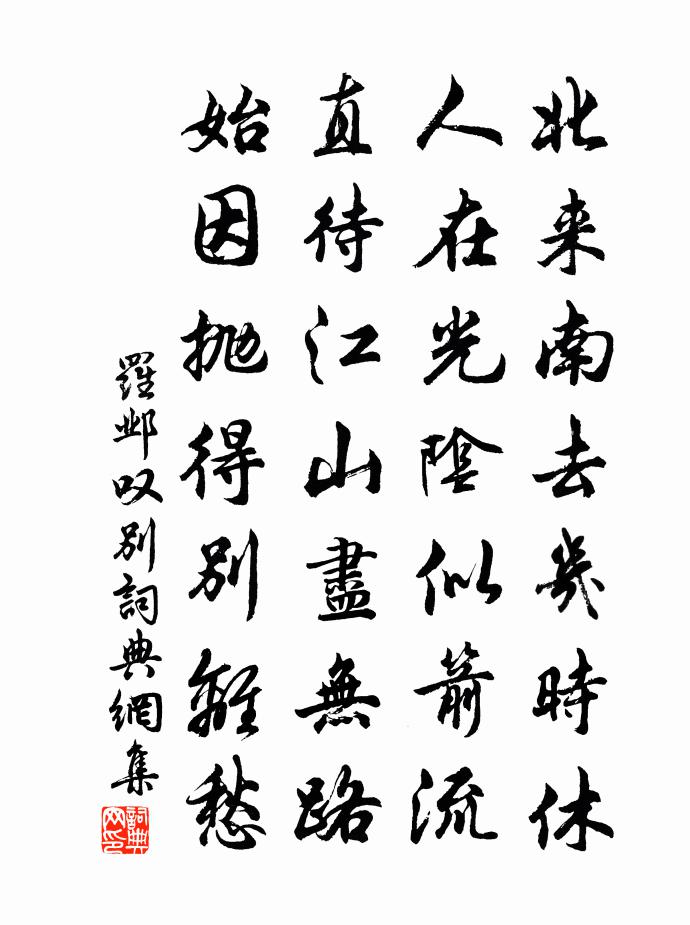 北来南去幾時休
人在光陰似箭流
直待江山盡無路
始因抛得別離愁
羅鄴叹別詞典網集
詞典网印